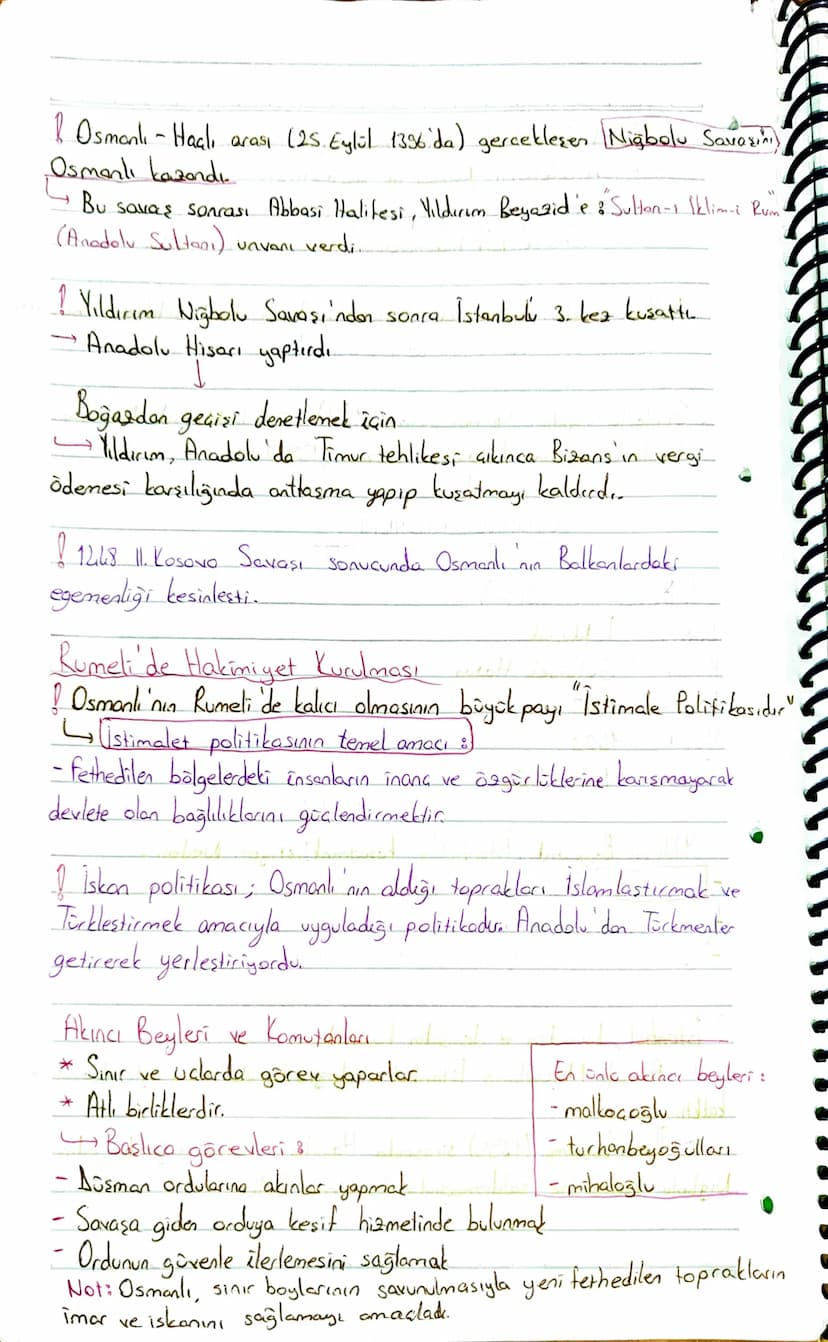 ! Osmanlı - Haçlı arası (25 Eylül 1396'da) gerçekleşen Niğbolu Savaşı'nı
Osmanlı kazandı.
↳ Bu savaş sonrası Abbasi Halifesi, Yıldırım Beyazid'e : "Sultan-ı İklim-i Rum"
(Anadolu Sultanı) unvanı verdi.
! Yıldırım Niğbolu Savaşı'ndan sonra İstanbulu 3. kez kuşattı.
→ Anadolu Hisarı yaptırdı
↓
Boğazdan geçişi denetlemek için
↳ Yıldırım, Anadolu'da Timur tehlikesi çıkınca Bizans'ın vergi
ödemesi karşılığında antlaşma yapıp kuşatmayı kaldırdı.
! 1248 II. Kosova Savaşı sonucunda Osmanlı'nın Balkanlardaki
egemenliği kesinleşti.
Rumeli'de Hakimiyet Kurulması
! Osmanlı'nın Rumeli'de kalıcı olmasının büyük payı "İstimale Politikasıdır"
↳ İstimalet politikasının temel amacı :
- Fethedilen bölgelerdeki insanların inanç ve özgürlüklerine karışmayarak
devlete olan bağlılıklarını güçlendirmektir.
! İskan politikası ; Osmanlı'nın aldığı toprakları İslamlaştırmak ve
Türkleştirmek amacıyla uyguladığı politikadır. Anadolu'dan Türkmenler
getirerek yerleştiriyordu.
Akıncı Beyleri ve Komutanları
* Sınır ve uçlarda görev yaparlar.
* Atlı birliklerdir.
↳ Başlıca görevleri :
- Düşman ordularına akınlar yapmak
- Savaşa giden orduya keşif hizmetinde bulunmak
- Ordunun güvenle ilerlemesini sağlamak
En ünlü akıncı beyleri :
- malkoçoğlu
- turhanbeyoğulları
- mihaloğlu
Not: Osmanlı, sınır boylarının savunulmasıyla yeni fethedilen toprakların
imar ve iskanını sağlamayı amaçladı.